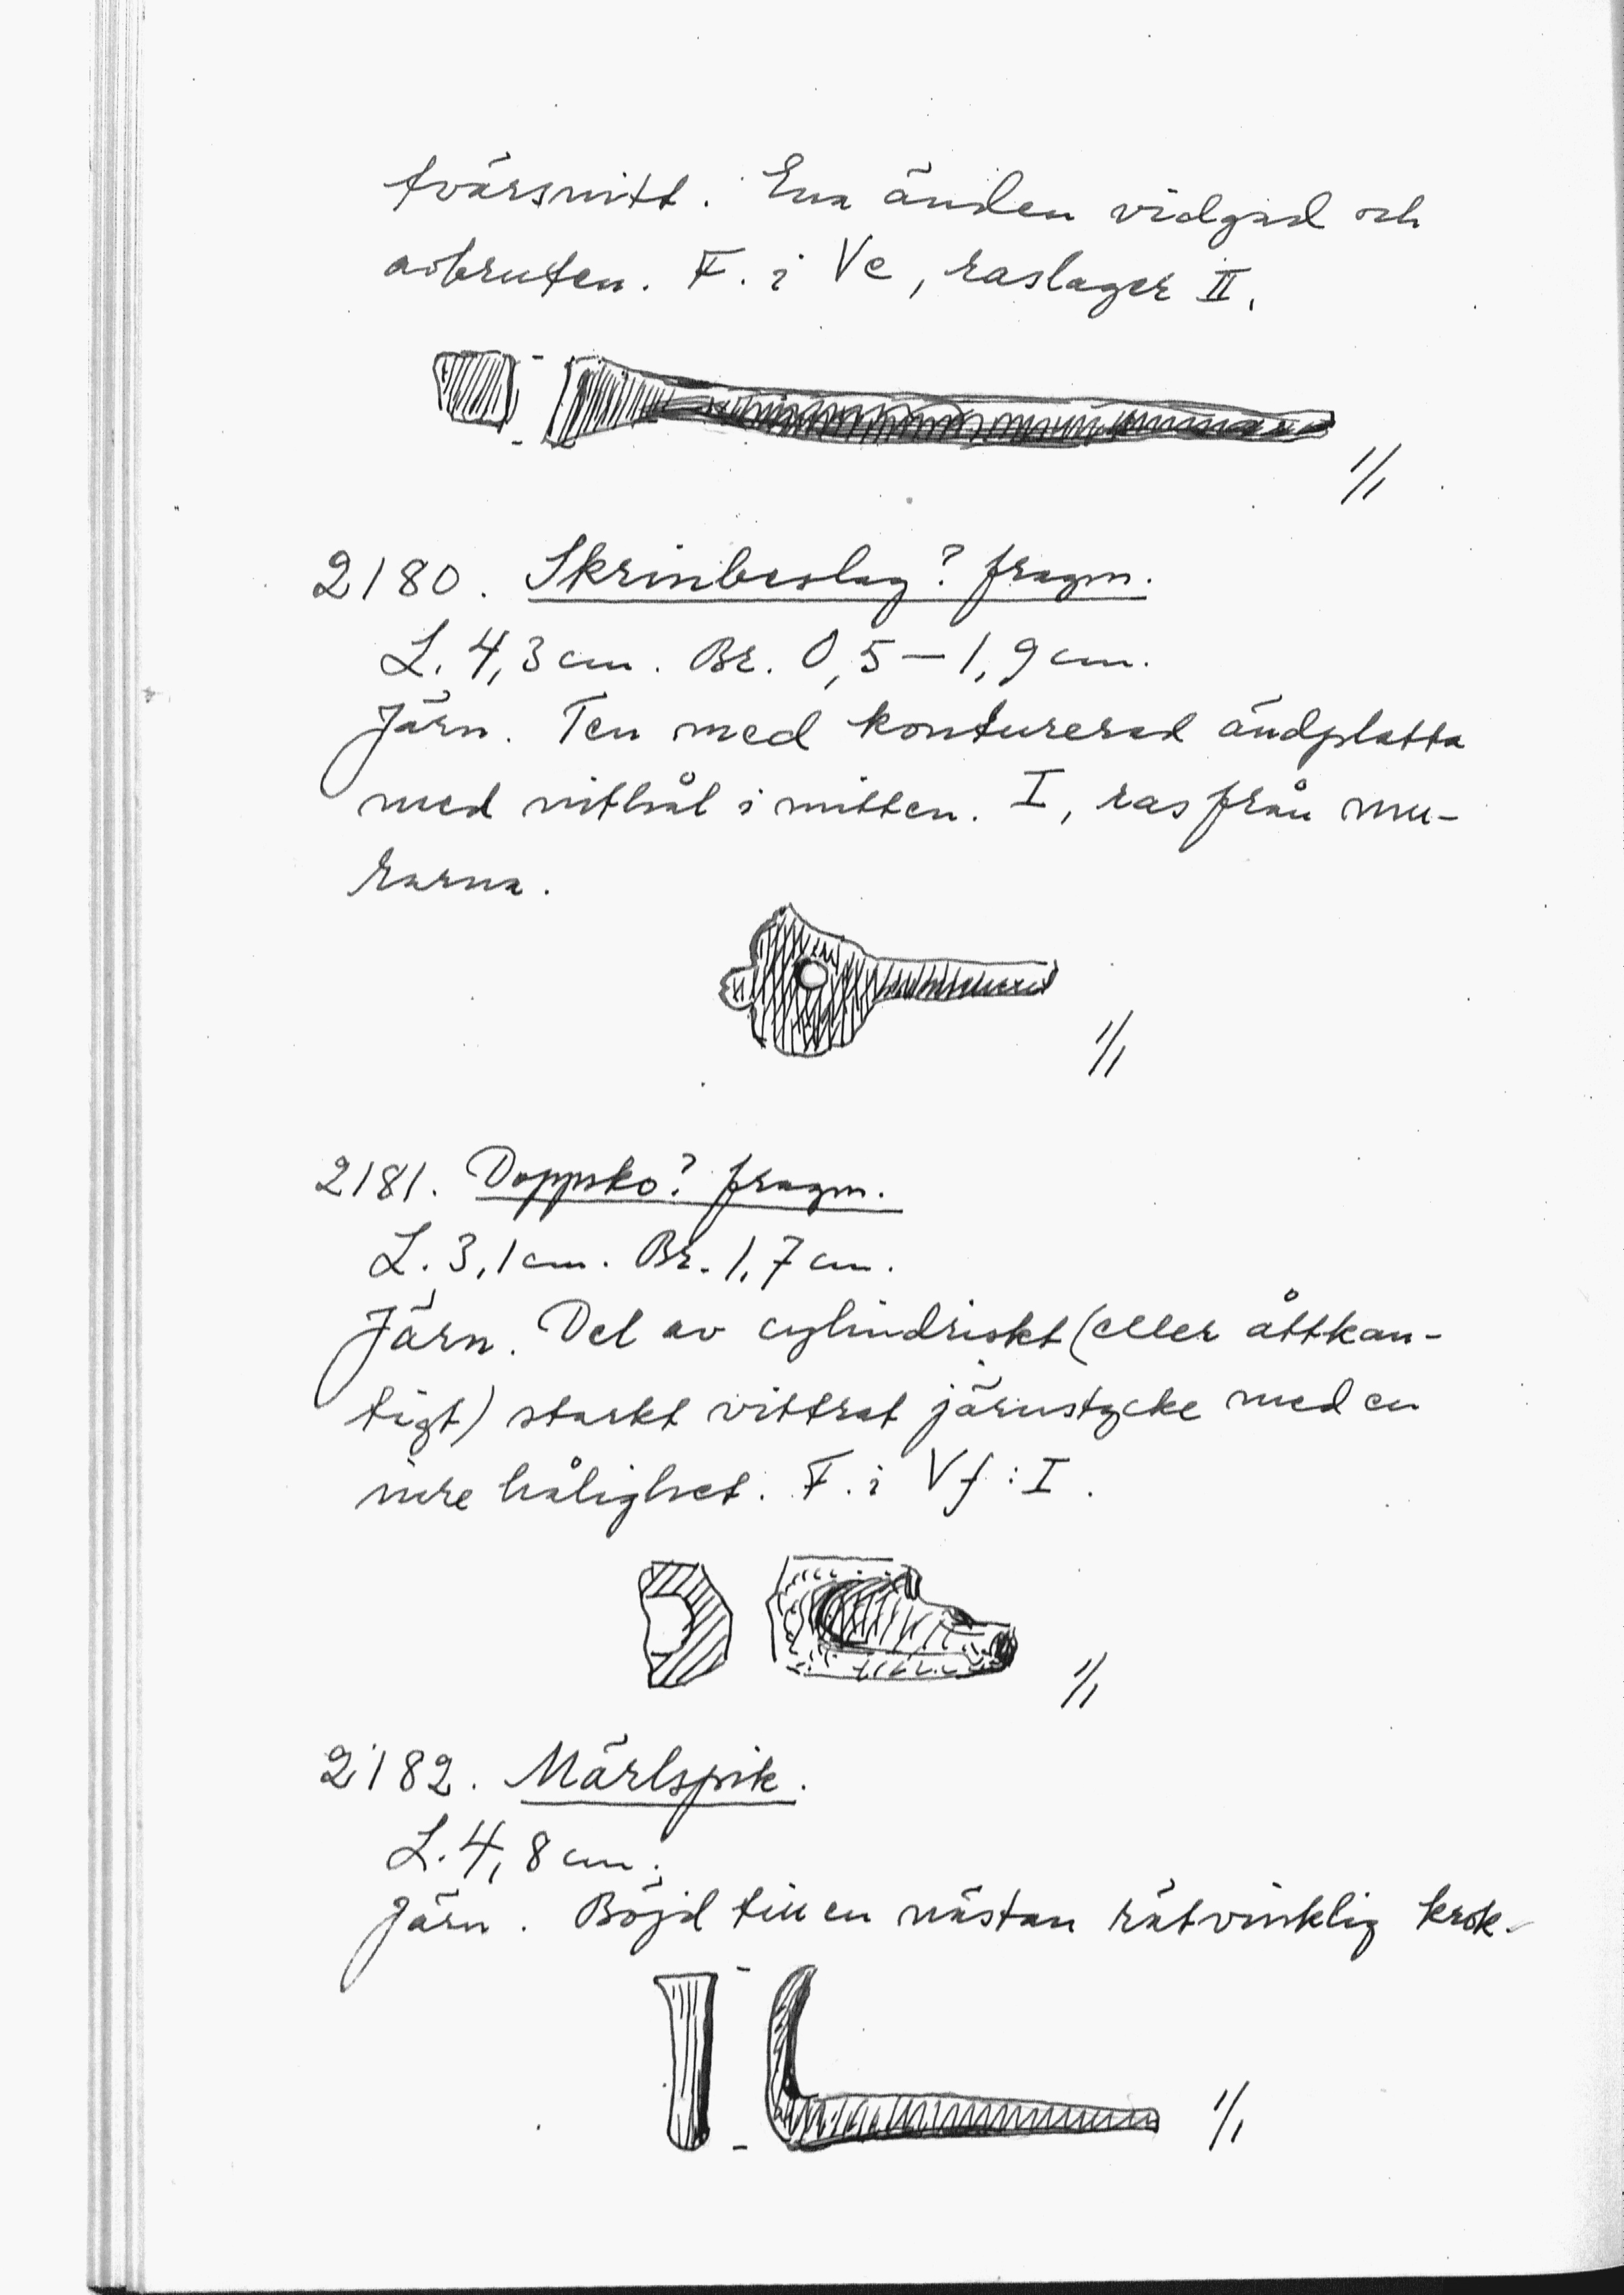 tvärsnitt. Ena änden vidgad och
avbruten. F. i Ve, raslager II.
1/1
2180. Skrinbeslag? fragm.
L. 4,3 cm. Br. 0,5–1,9 cm.
Järn. Ten med konturerad ändplatta
med nithål i mitten. I, ras från mu-
rarna.
1/1
2181. Doppsko? fragm.
L. 3,1 cm. Br. 1,7 cm.
Järn. Del av cylindriskt (eller åttkan-
tigt) starkt vittrat järnstycke med en
inre hålighet. F. i Vf:I.
1/1
2182. Märlspik.
L. 4,8 cm.
Järn. Böjd till en nästan rätvinklig krok.
1/1